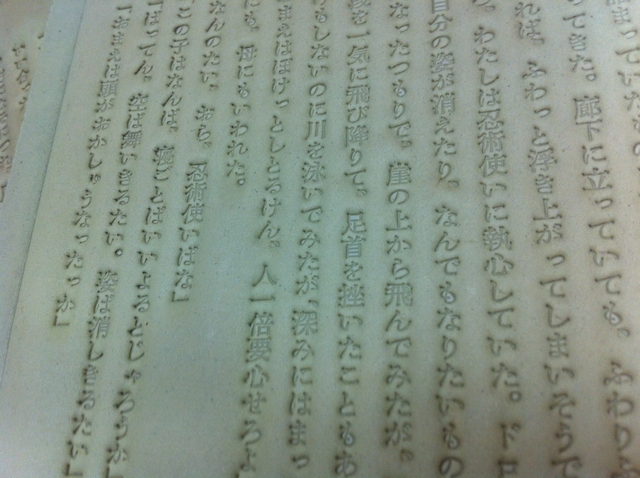 ってきた。廊下に立っていても、ふわり
れば、ふわっと浮き上がってしまいそうで
わたしは忍術使いに執心していた。ドロ
自分の姿が消えたり。なんでもなりたいもの
なったつもりで。崖の上から飛んでみたが。
を一気に飛び降りて。足首を挫いたこともあ
もしないのに川を泳いでみたが、深みにはまっ
まえはぼけっとしとるけん。人一倍要心せろよ
にも、母にもいわれた。
なんのたい。おち、忍術使いばな」
「この子はなんば。寝ごとばいいよるとじゃろうか」
「ばってん。空ば舞いきるたい。姿ば消しきるたい」
「おまえは頭がおかしゅうなったっか」